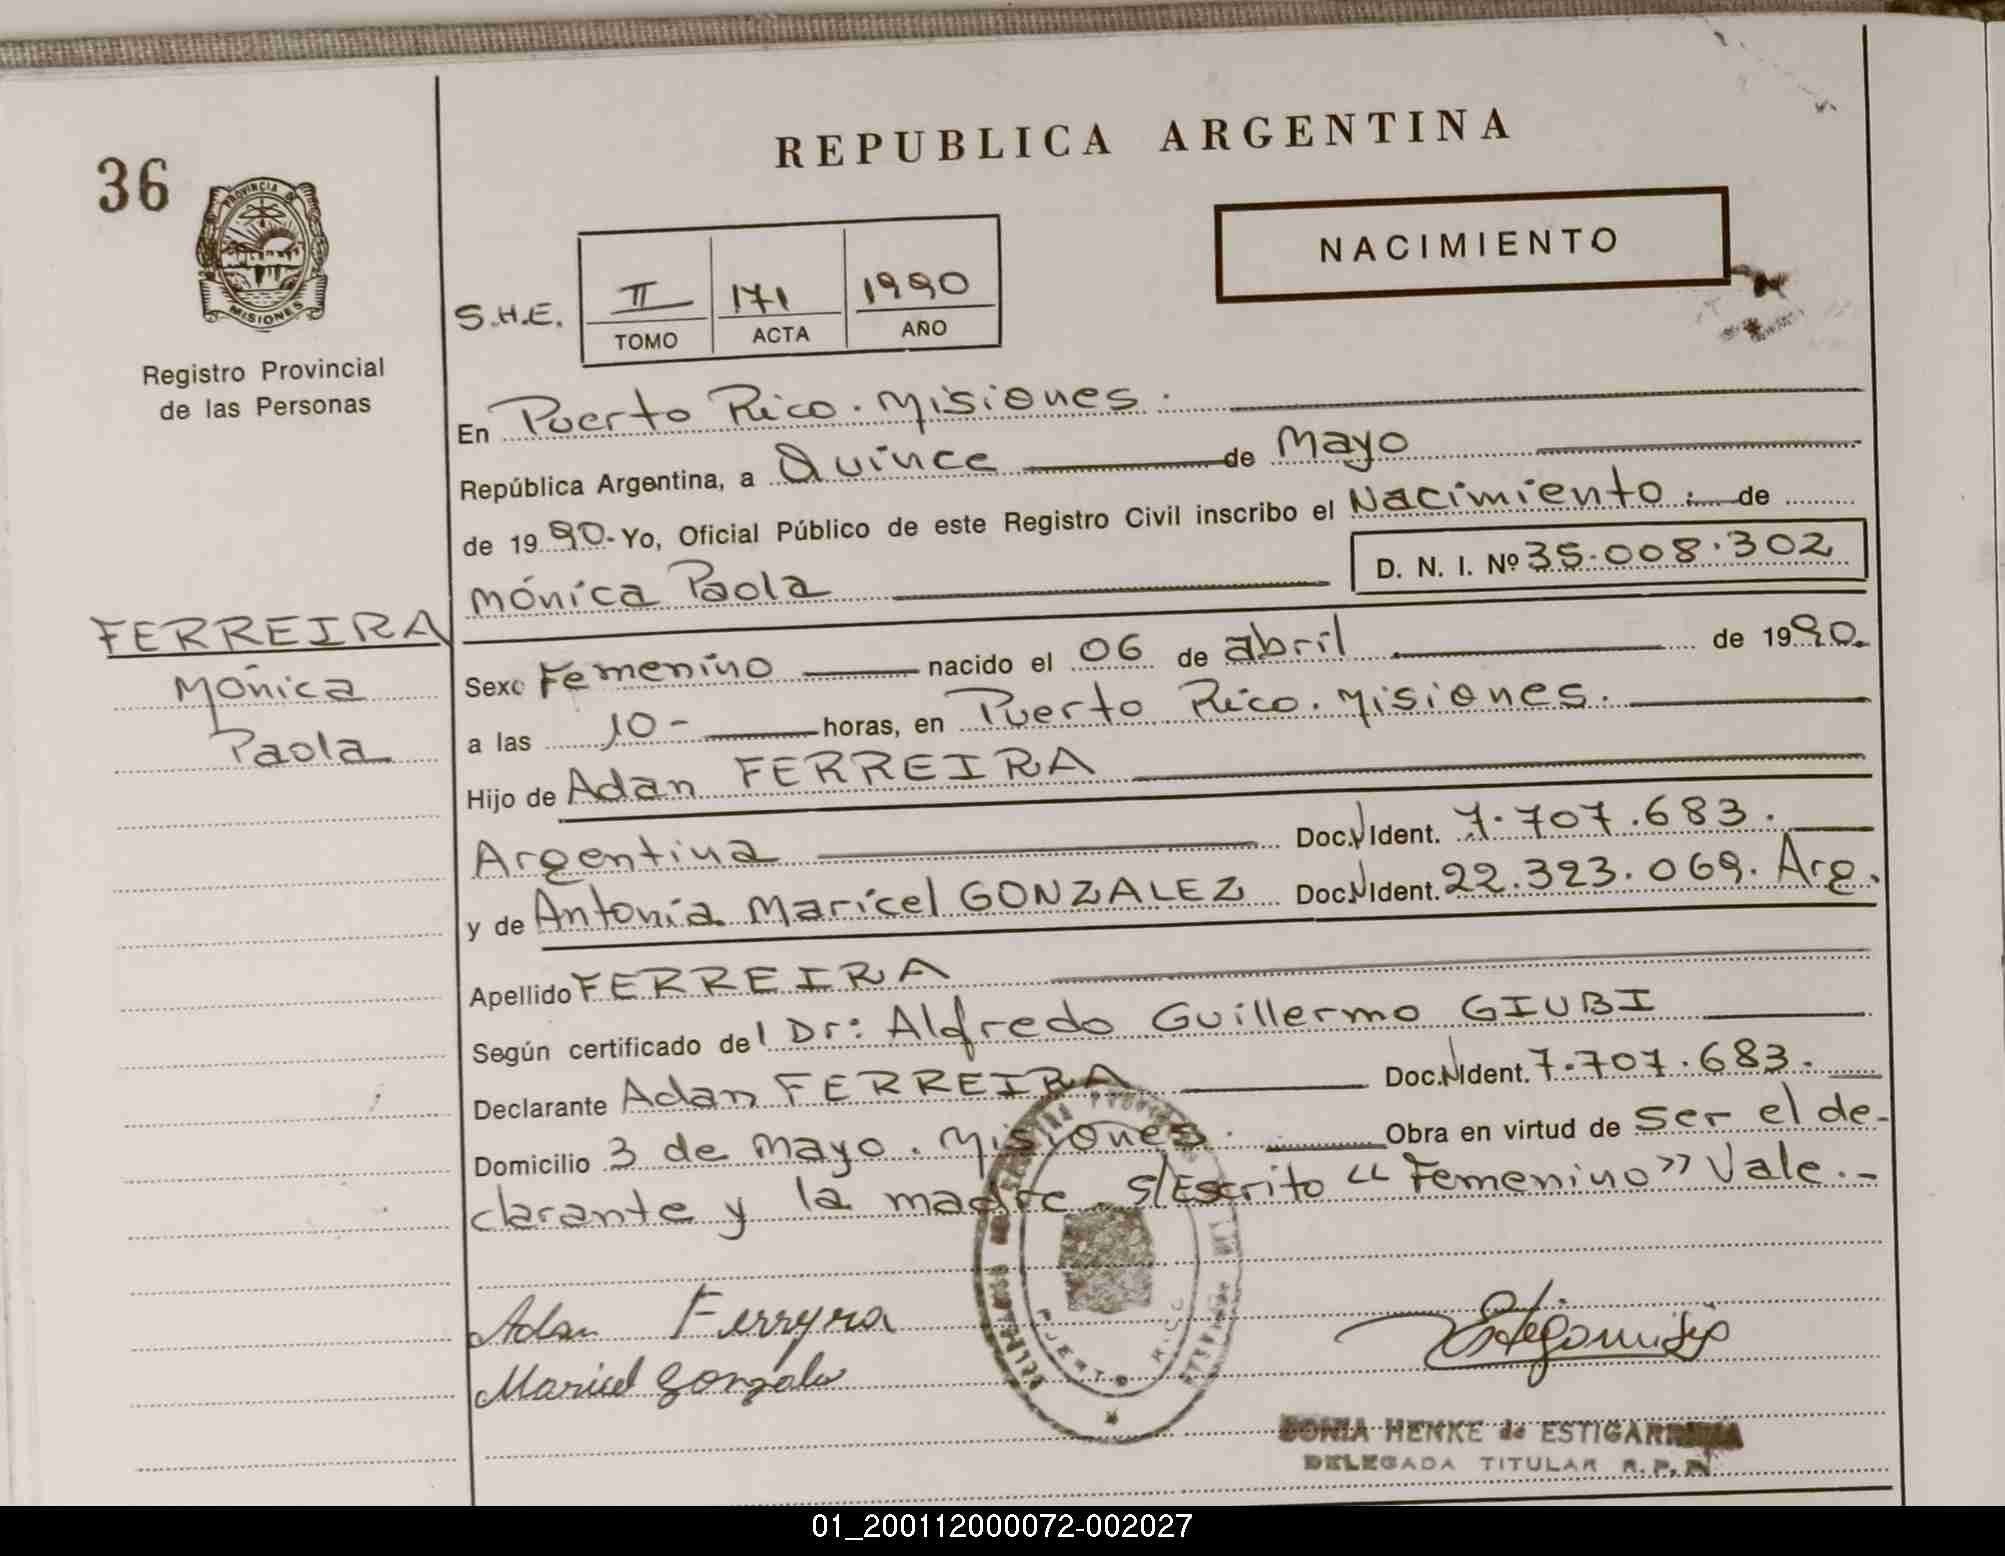 REPUBLICA ARGENTINA
36
PROVINCIA DE
MISIONES
NACIMIENTO
S.H.E.
II 171 1990
TOMO ACTA AÑO
Registro Provincial
de las Personas
En Puerto Rico. Misiones.
República Argentina, a Quince de Mayo
de 1990- Yo, Oficial Público de este Registro Civil inscribo el Nacimiento. de
Mónica Paola D. N. I. Nº 35.008.302
FERREIRA
Mónica
Paola
Sexo Femenino nacido el 06 de abril de 1990.
a las 10- horas, en Puerto Rico. Misiones.
Hijo de Adan FERREIRA
Argentina Doc. Ident. 7.707.683.
y de Antonia Maricel GONZALEZ Doc. Ident. 22.323.069. Arg.
Apellido FERREIRA
Según certificado del Dr: Alfredo Guillermo GIUBI
Declarante Adan FERREIRA Doc. Ident. 7.707.683.
Domicilio 3 de Mayo. Misiones. Obra en virtud de ser el de-
clarante y la madre s/Escrito "Femenino" Vale.-
Adan Ferreyra
Maricel Gonzalez
PUERTO RICO
SONIA HENKE de ESTIGARRIBIA
DELEGADA TITULAR R.P.P.
01_200112000072-002027